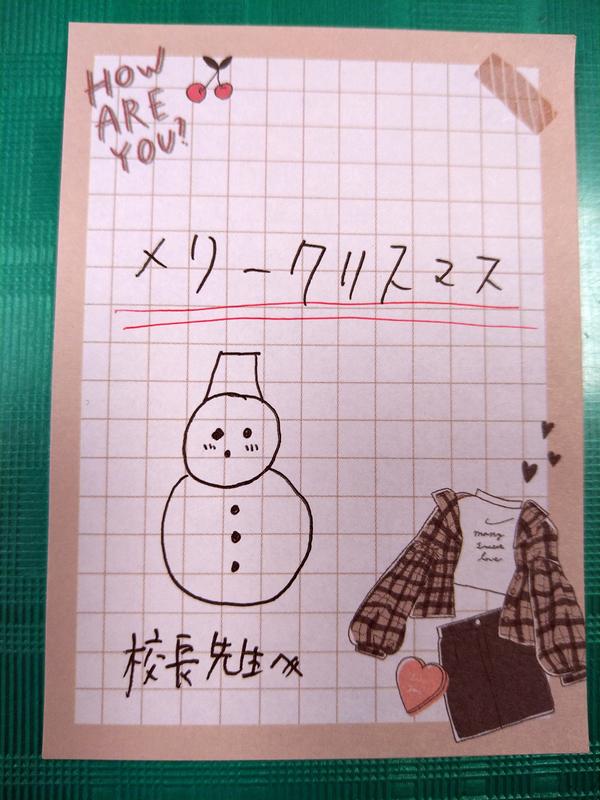 HOW
ARE
YOU?
メリークリスマス
many
love
校長先生へ